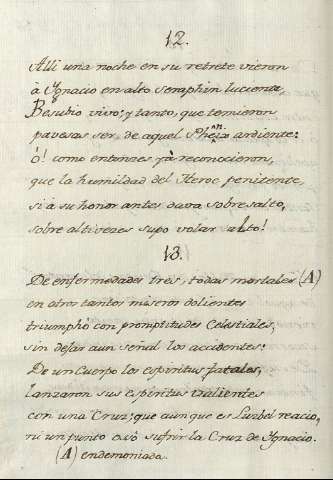 12.
Alli una noche en su retrete vieron
à Ygnacio en alto seraphin luciente,
Besubio vivo; y tanto, que temieron
pavesas ser, de aquel Phenix ardiente:
ò! como entonces ya reconocieron,
que la humildad del Heroe penitente,
si à su honor antes dava sobresalto,
sobre altivezes supo volar alto!
13.
De enfermedades tres, todas mortales (A)
en otros tantos miseros dolientes
triumphò con promptitudes Celestiales,
sin dejar aun señal los accidentes:
De un Cuerpo los espiritus fatales,
lanzaron sus espiritus valientes
con una Cruz; que aunque es Luzbel reacio,
ni un punto osò sufrir la Cruz de Ygnacio.
(A) endemoniada.